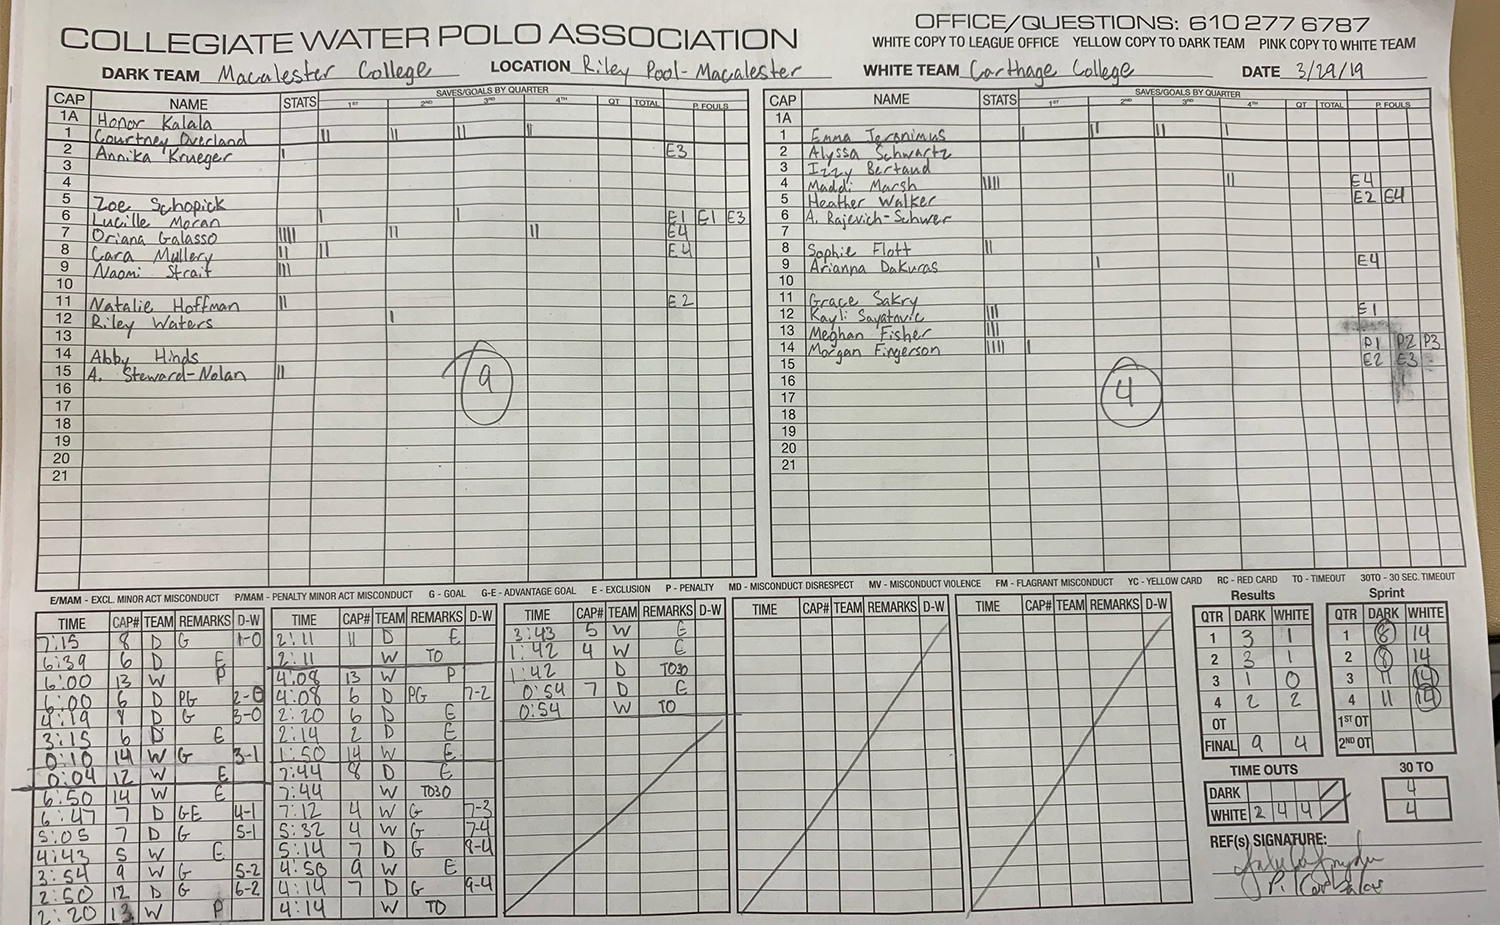 COLLEGIATE WATER POLO ASSOCIATION
OFFICE/QUESTIONS: 610 277 6787
WHITE COPY TO LEAGUE OFFICE YELLOW COPY TO DARK TEAM PINK COPY TO WHITE TEAM
DARK TEAM Macalester College LOCATION Riley Pool-Macalester WHITE TEAM Carthage College DATE 3/29/19
CAP NAME STATS SAVES/GOALS BY QUARTER 1ST 2ND 3RD 4TH OT TOTAL P. FOULS
1A Honor Kalala
1 Courtney Overland || || || ||
2 Annika Krueger | E3
3
4
5 Zoe Schopick
6 Lucille Moran | | E1 E1 E3
7 Oriana Galasso |||| || || E4
8 Cara Mullery || || E4
9 Naomi Strait |||
10
11 Natalie Hoffman || E2
12 Riley Waters |
13
14 Abby Hinds
15 A. Steward-Nolan ||
16
17
18
19
20
21
9
CAP NAME STATS SAVES/GOALS BY QUARTER 1ST 2ND 3RD 4TH OT TOTAL P. FOULS
1A
1 Emma Jeronimus | || || |
2 Alyssa Schwartz
3 Izzy Bertaud
4 Maddi Marsh |||| || E4
5 Heather Walker E2 E4
6 A. Rajevich-Schwer
7
8 Sophie Flott ||
9 Arianna Dakuras | E4
10
11 Grace Sakry
12 Kayli Sayatovic ||| E1
13 Meghan Fisher ||| P1 P2 P3
14 Morgan Fingerson |||| | E2 E3
15
16
17
18
19
20
21
4
E/MAM - EXCL. MINOR ACT MISCONDUCT P/MAM - PENALTY MINOR ACT MISCONDUCT G - GOAL G-E - ADVANTAGE GOAL E - EXCLUSION P - PENALTY MD - MISCONDUCT DISRESPECT MV - MISCONDUCT VIOLENCE FM - FLAGRANT MISCONDUCT YC - YELLOW CARD RC - RED CARD TO - TIMEOUT 30TO - 30 SEC. TIMEOUT
TIME CAP# TEAM REMARKS D-W
7:15 8 D G 1-0
6:39 6 D E
6:00 13 W P
6:00 6 D PG 2-0
4:19 8 D G 3-0
3:15 6 D E
0:10 14 W G 3-1
0:04 12 W E
6:50 14 W E
6:47 7 D GE 4-1
5:05 7 D G 5-1
4:43 5 W E
3:54 9 W G 5-2
2:50 12 D G 6-2
2:20 13 W P
TIME CAP# TEAM REMARKS D-W
2:11 11 D E
2:11 W TO
4:08 13 W P
4:08 6 D PG 7-2
2:20 6 D E
2:14 2 D E
1:50 14 W E
7:44 8 D E
7:44 W TO30
7:12 4 W G 7-3
5:32 4 W G 7-4
5:14 7 D G 8-4
4:50 9 W E
4:14 7 D G 9-4
4:14 W TO
TIME CAP# TEAM REMARKS D-W
3:43 5 W E
1:42 4 W E
1:42 D TO30
0:54 7 D E
0:54 W TO
TIME CAP# TEAM REMARKS D-W
TIME CAP# TEAM REMARKS D-W
Results
QTR DARK WHITE
1 3 1
2 3 1
3 1 0
4 2 2
OT
FINAL 9 4
Sprint
QTR DARK WHITE
1 8 14
2 8 14
3 11 14
4 11 14
1ST OT
2ND OT
TIME OUTS
DARK
WHITE 2 4 4
30 TO
4
4
REF(s) SIGNATURE: